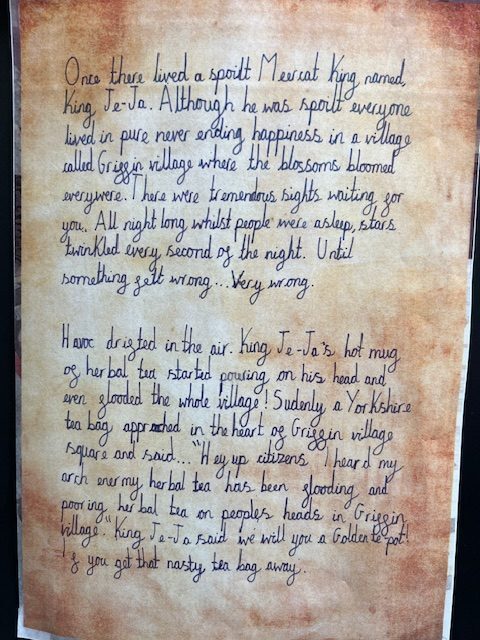 Once there lived a spoilt Meercat King named,
King Je-Ja. Although he was spoilt everyone
lived in pure never ending happiness in a village
called Griffin village where the blossoms bloomed
everywere. There were tremendous sights waiting for
you. All night long whilst people were asleep, stars
twinkled every second of the night. Until
something felt wrong... Very wrong.
Havoc drifted in the air. King Je-Ja's hot mug
of herbal tea started pouring on his head and
even flooded the whole village! Sudenly a Yorkshire
tea bag appr ched in the heart of Griffin village
square and said... "Hey up citizens I heard my
arch enermy herbal tea has been flooding and
pooring herbal tea on peoples heads in Griffin
village." King Je-Ja said we will you a Golden te pot!
if you get that nasty tea bag away.